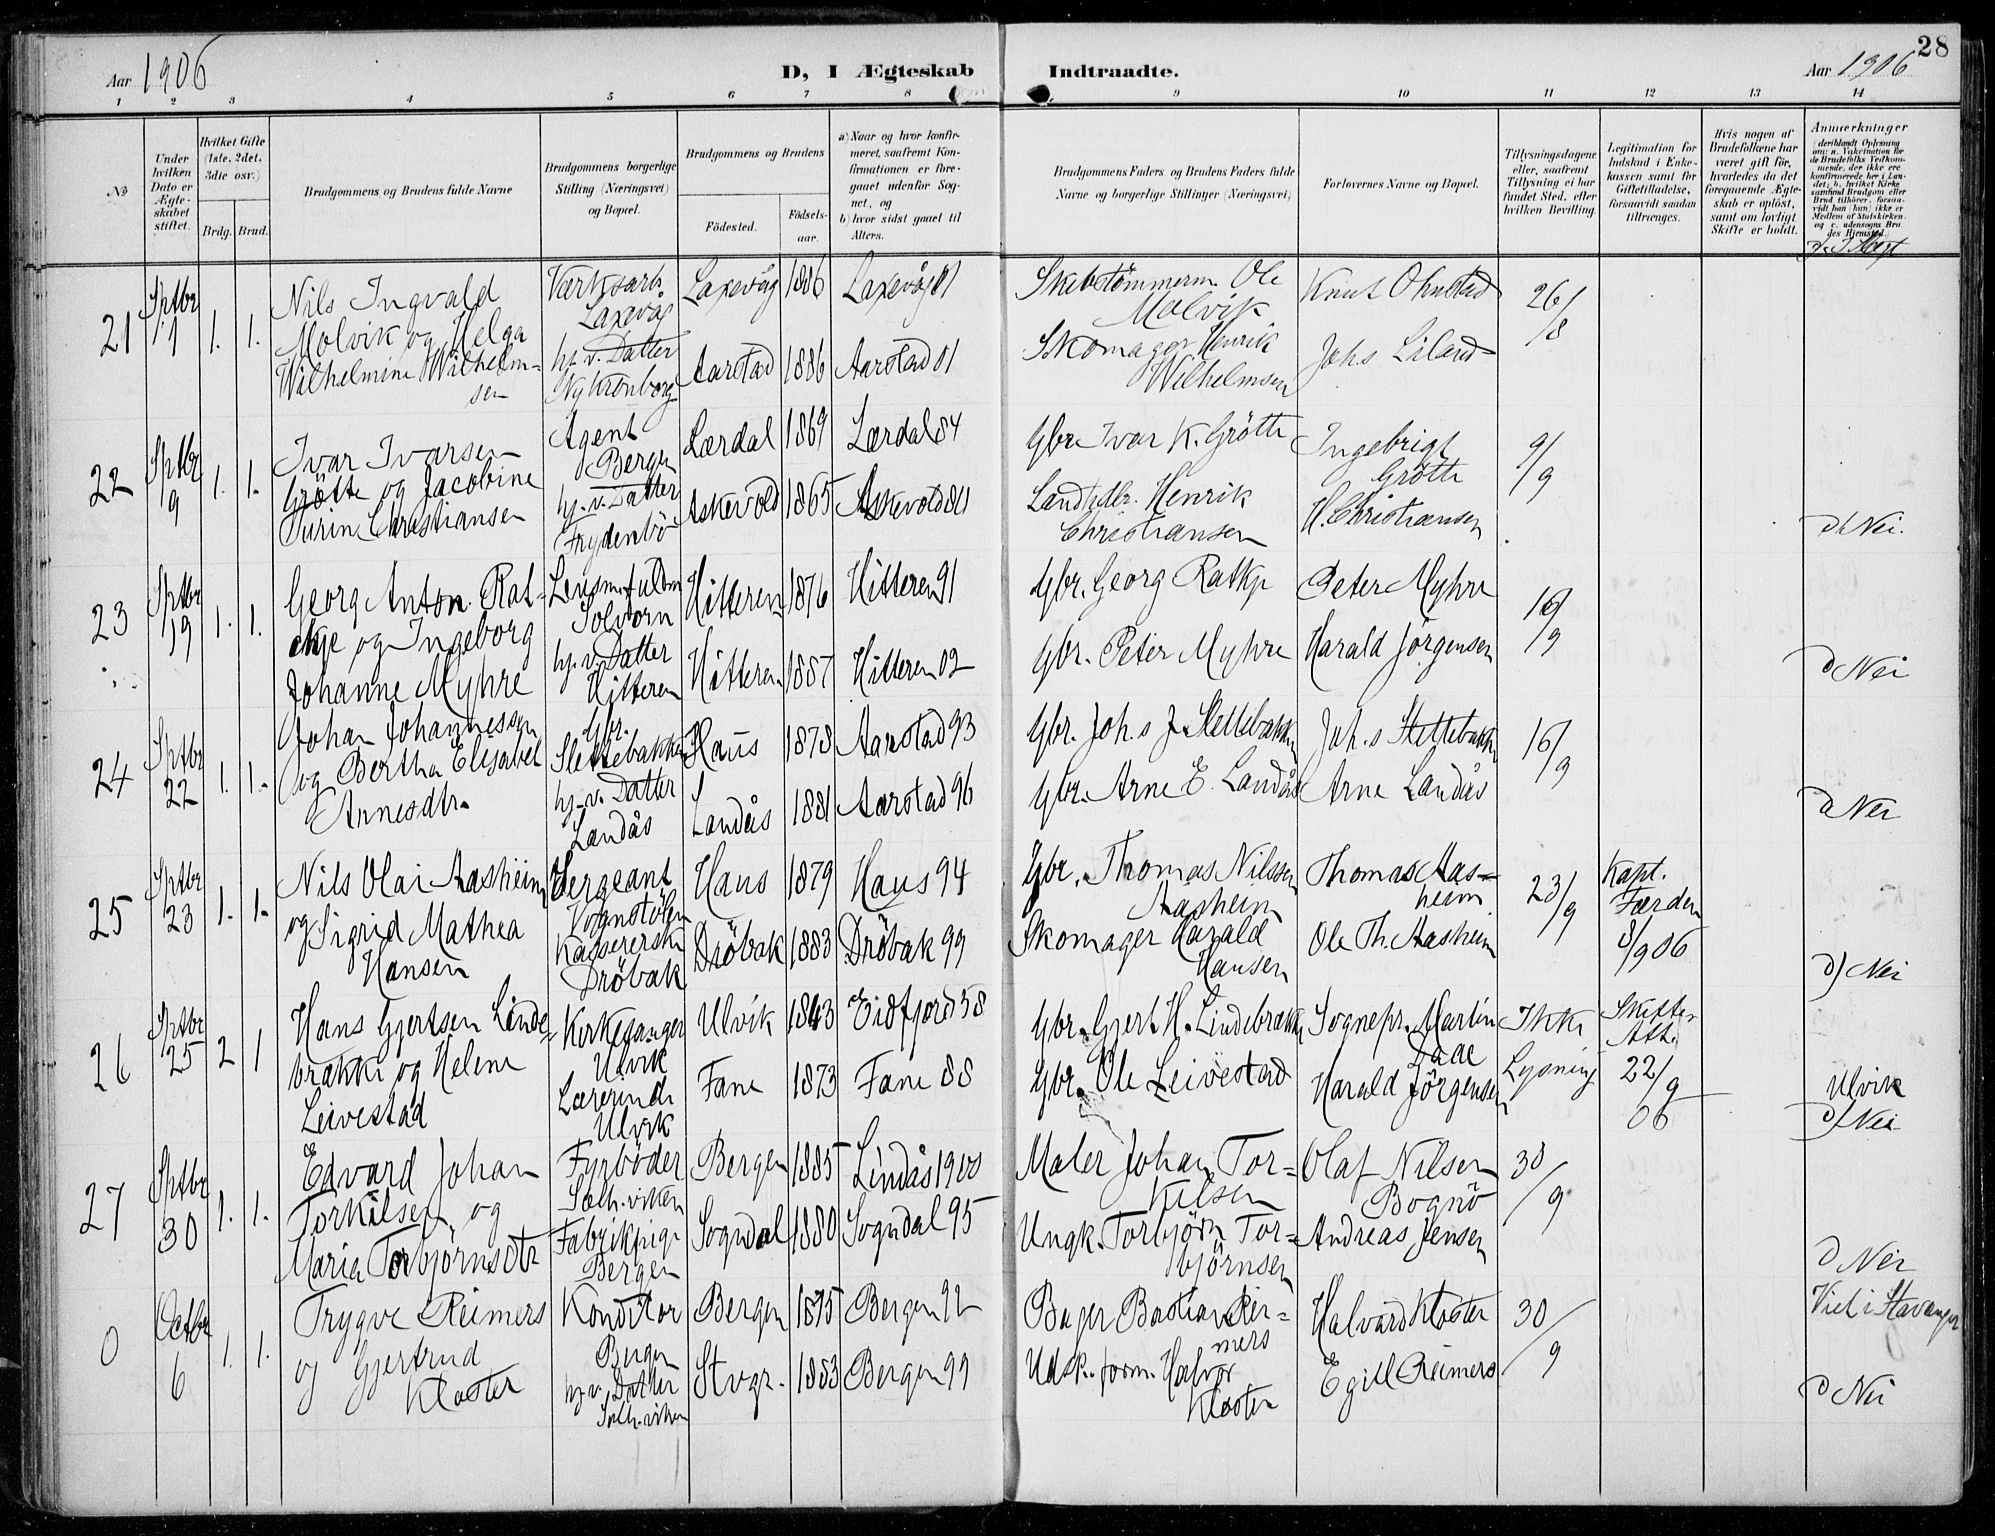 28
Aar 1906
D, I Ægteskab Indtraadte.
Aar 1906
1 2 3 4 5 6 7 8 9 10 11 12 13 14
No
Under hvilken Dato er Ægteskabet stiftet.
Hvilket Gifte (1ste, 2det, 3die osv.)
Brdg. Brud.
Brudgommens og Brudens fulde Navne
Brudgommens borgerlige Stilling (Næringsvei) og Bopæl.
Brudgommens og Brudens
Fødested.
Fødselsaar.
a) Naar og hvor konfirmeret, saafremt Konfirmationen er foregaaet udenfor Sognet, og
b) hvor sidst gaaet til Alters.
Brudgommens Faders og Brudens Faders fulde Navne og borgerlige Stillinger (Næringsvei)
Forlovernes Navne og Bopæl.
Tillysningsdagene eller, saafremt Tillysning ei har fundet Sted, efter hvilken Bevilling.
Legitimation for Indskud i Enkekassen samt for Giftetilladelse, forsaavidt saadan tiltrænges.
Hvis nogen af Brudefolkene har været gift før, hvorledes da det foregaaende Ægteskab er opløst, samt om lovligt Skifte er holdt.
Anmerkninger
21
Sptbr
1.
1.
Nils Ingvald
Molvik og Helga
Wilhelmine Wilhelm-
sen
Laxevåg
hj. v. Datter
Ny Kronborg
Laxevåg 1886 Laxevåg 01
Aarstad 1886 Aarstad 01
Skibstømmerm. Ole
Molvik
Skomager Henrik
Wilhelmsen
Knut Ohnstad
Johs Liland
26/8
22
Sptbr
9
1.
1.
Ivar Ivarsen
Grøtte og Jacobine
Turine Christiansen
Agent
Bergen
hj. v. Datter
Frydenbö
Lærdal 1869 Lærdal 84
Askevold 1865 Askevold 80
Gbr. Ivar K. Grøtte
Landhdlr. Henrik
Christiansen
Ingebrigt
Grøtte
H. Christiansen
9/9
d Nei.
23
Sptbr
19
1.
1.
Georg Anton Rat-
kje og Ingeborg
Johanne Myhre
Solvorn
hj. v. Datter
Hitteren
Hitteren 1876 Hitteren 91
Hitteren 1887 Hitteren 02
Gbr. Georg Ratkje
Gbr. Peter Myhre
Peter Myhre
Harald Jørgensen
16/9
d Nei
24
Sptbr
22
1.
1.
Johan Johannessen
og Bertha Elisabet
Arnesdtr.
Gbr.
Slettebakken
hj. v. Datter
Landås
Haus 1878 Aarstad 93
Landås 1881 Aarstad 96
Gbr. Johs J. Slettebakken
Gbr. Arne E. Landås
Johs Slettebakken
Arne Landås
16/9
d Nei
25
Sptbr
23
1.
1.
Nils Olai Aasheim
og Sigrid Mathea
Hansen
Sergeant
Vognstølen
Kassererske
Drøbak
Haus 1879 Haus 94
Drøbak 1883 Drøbak 99
Gbr. Thomas Nilssen
Aasheim
Skomager Harald
Hansen
Thomas Aas-
heim
Ole Th. Aasheim
23/9
Kapt.
Færden
8/9 06
d) Nei
26
Sptbr
25
2
1
Hans Gjertsen Linde-
brække og Helene
Leivestad
Kirkesanger
Ulvik
Lærerinde
Ulvik
Ulvik 1843 Eidfjord 58
Fane 1873 Fane 88
Gbr. Gjert H. Lindebrække
Gbr. Ole Leivestad
Sognepr. Martin
Daae
Harald Jörgensen
Ikke
Lysning
Skifte
Att.
22/9
06
Ulvik
d) Nei
27
Sptbr
30
1.
1.
Edvard Johan
Torkilsen og
Maria Torbjørnsdtr
Fyrbøder
Solh.viken
Fabrikpige
Bergen
Bergen 1885 Lindås 1900
Sogndal 1880 Sogndal 95
Maler Johan Tor=
kilsen
Ungk. Torbjörn Tor-
björnsen
Olaf Nilsen
Bognö
Andreas Jensen
30/9
d Nei
0
Octbr
6
1.
1.
Trygve Reimers
og Gjertrud
Kloster
Konditor
Bergen
hj. v. Datter
Solh.viken
Bergen 1875 Bergen 92
Stvgr. 1883 Bergen 99
Bager Bastian Rei-
mers
Udsk.form. Halvor
Kloster
Halvard Kloster
Egill Reimers
30/9
Viet i Stavanger
d Nei